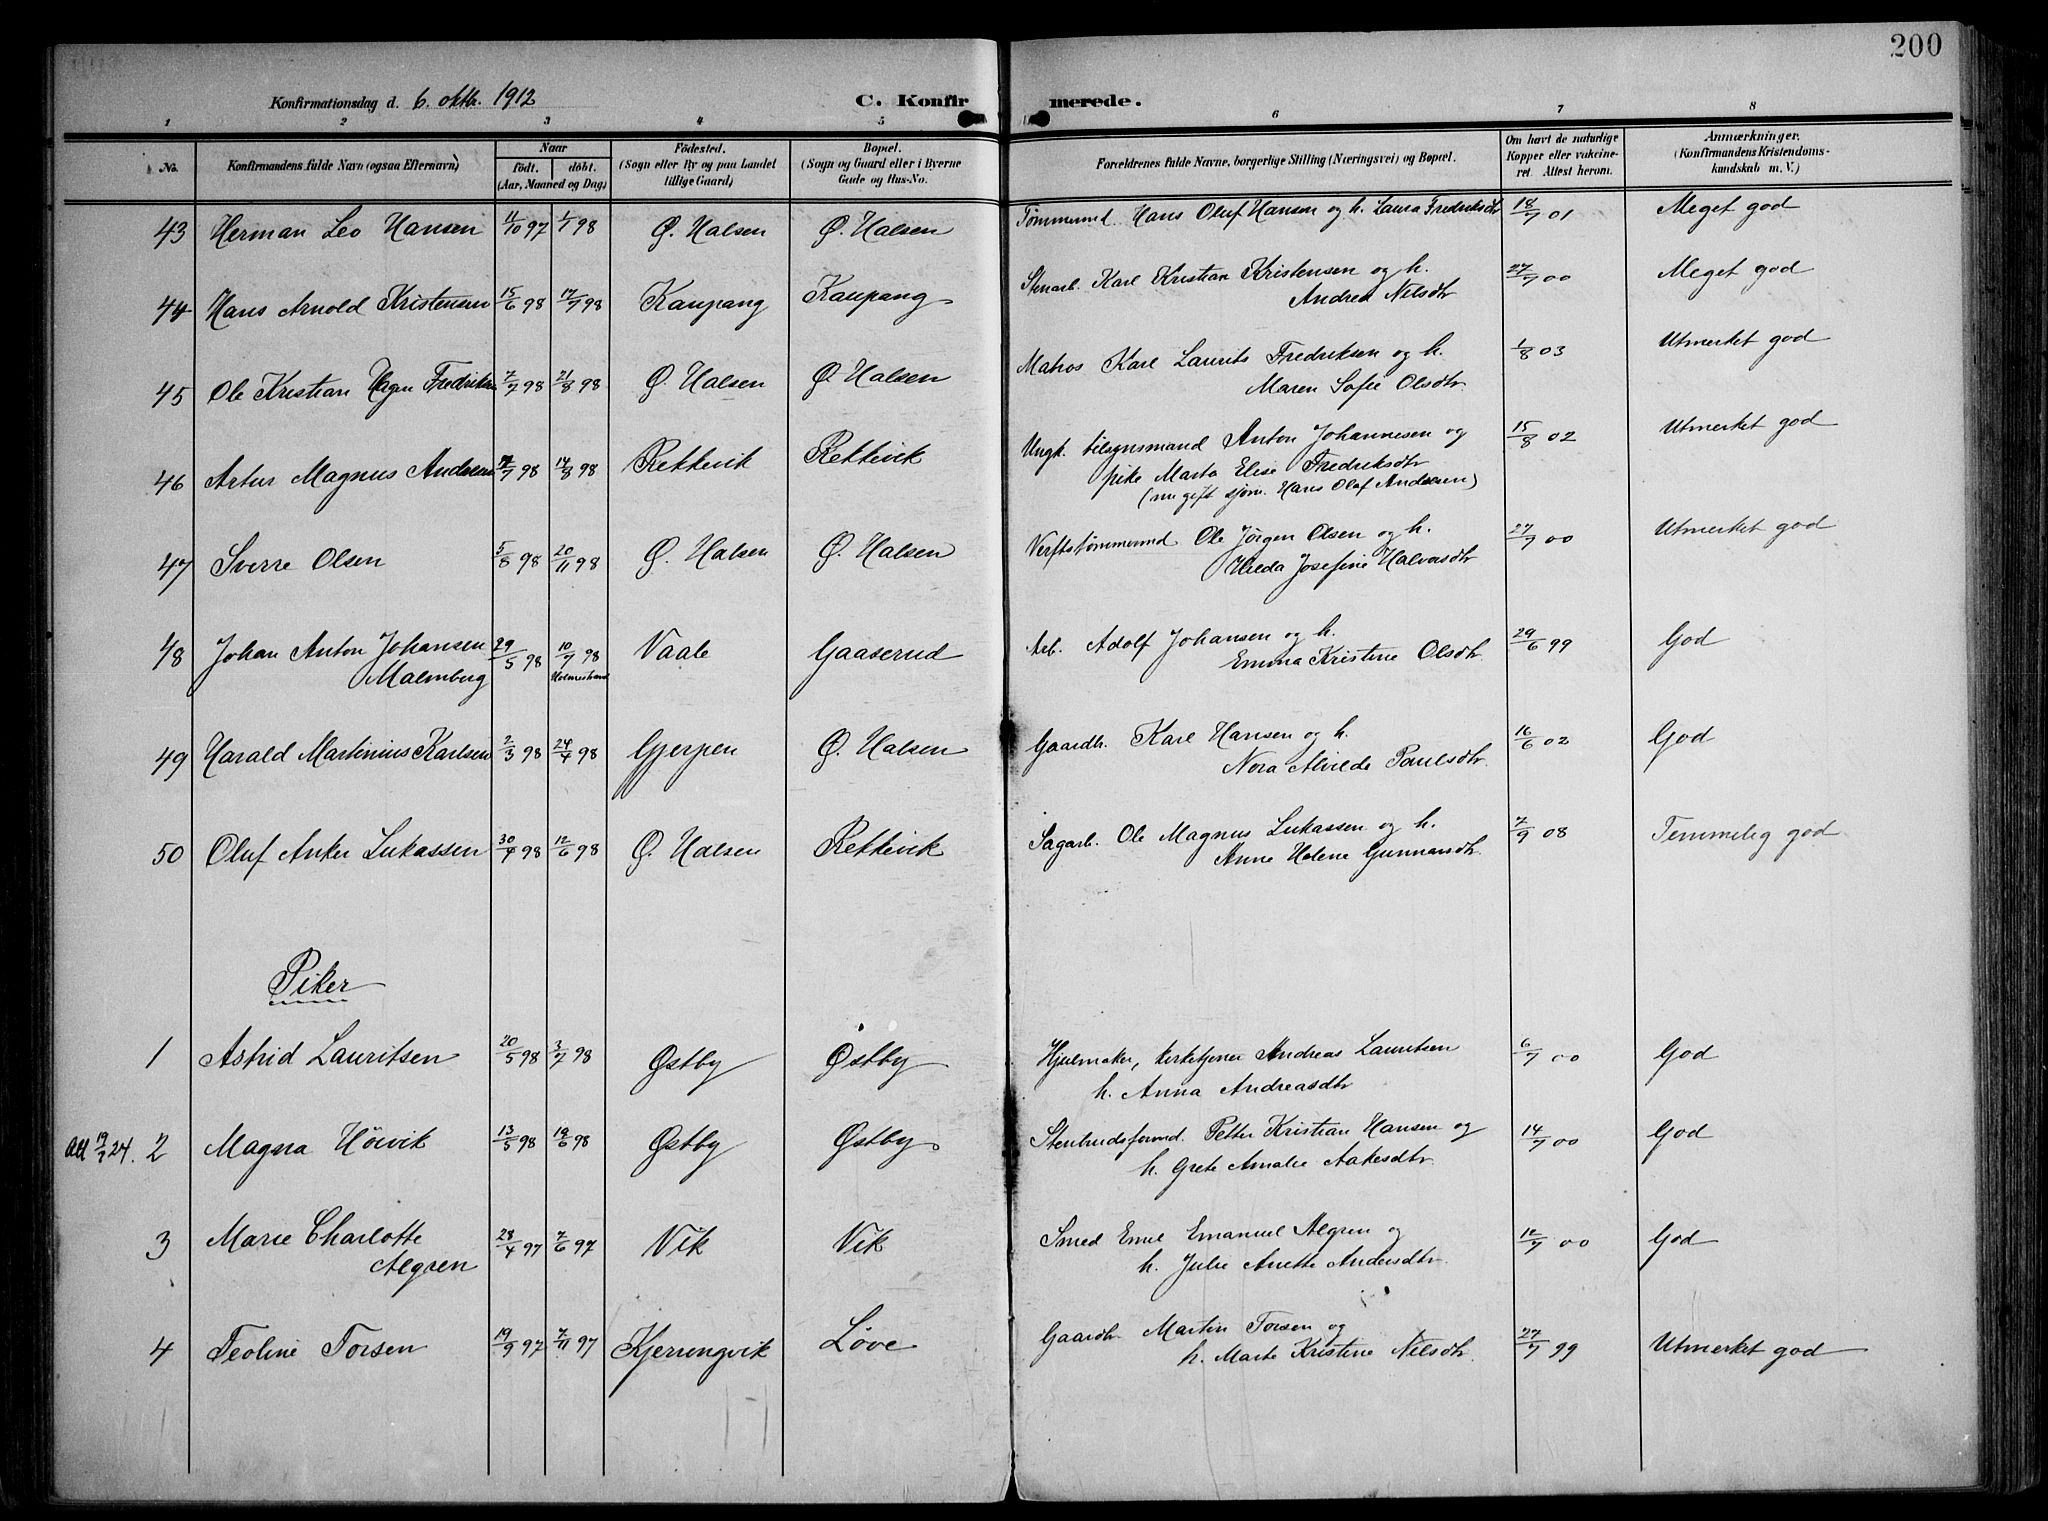 200
Konfirmationsdag d. 6. oktb. 1912 C. Konfirmerede.
1 2 3 4 5 6 7 8
No. Konfirmandens fulde Navn (ogsaa Efternavn) Naar født. døbt. (Aar, Maaned og Dag) Fødested. (Sogn eller By og paa Landet tillige Gaard) Bopæl. (Sogn og Gaard eller i Byerne Gade og Hus-No. Forældrenes fulde Navne, borgerlige Stilling (Næringsvei) og Bopæl. Om havt de naturlige Kopper eller vakcineret. Attest herom. Anmærkninger. (Konfirmandens Kristendomskundskab m. V.)
43 Herman Leo Hansen 11/10 97 1/1 98 Ø. Halsen Ø. Halsen Tømmermd. Hans Oluf Hansen og h. Laura Fredriksdtr 18/7 01 Meget god
44 Hans Arnold Kristensen 15/6 98 17/7 98 Kaupang Kaupang Stenarb. Karl Kristian Kristensen og h. 27/7 00 Meget god
Andrea Nilsdtr
45 Ole Kristian Hagen Fredriksen 7/7 98 21/8 98 Ø. Halsen Ø. Halsen Matros Karl Laurits Fredriksen og h. 1/8 03 Utmerket god
Maren Sofie Olsdtr.
46 Artur Magnus Andresen 7/7 98 14/8 98 Rekkevik Rekkevik Ungk. tilsynsmand Anton Johannesen og 15/8 02 Utmerket god
pike Marta Elise Fredriksdtr
(nu gift sjøm. Hans Olaf Andresen)
47 Sverre Olsen 5/8 98 20/11 98 Ø. Halsen Ø. Halsen Verftstømmermd Ole Jörgen Olsen og h. 27/7 00 Utmerket god
Hilda Josefine Halvorsdtr
48 Johan Anton Johansen 29/5 98 10/7 98 Vaale Gaaserud Arb. Adolf Johansen og h. 29/6 99 God
Malmberg Holmestrand Emma Kristine Olsdtr.
49 Harald Martinius Karlsen 2/3 98 24/4 98 Gjerpen Ø. Halsen Gaardbr. Karl Hansen og h. 16/6 02 God
Nora Alvilde Paulsdtr.
50 Oluf Anker Lukassen 30/4 98 12/6 98 Ø. Halsen Rekkevik Sagarb. Ole Magnus Lukassen og h. 7/9 08 Temmelig god
Anne Helene Gunnarsdtr.
Piker
1 Astrid Lauritsen 20/5 98 3/7 98 Østby Østby Hjulmaker, kirketjener Andreas Lauritsen 6/7 00 God
h. Anna Andreasdtr
Att 19/7 24. 2 Magna Höivik 13/5 98 19/6 98 Østby Østby Stenbrudsformd. Petter Kristian Hansen og 14/7 00 God
h. Grete Amalie Aakesdtr.
3 Marie Charlotte 28/4 97 7/6 97 Vik Vik Smed Emil Emanuel Algren og 12/7 00 God
Algren h. Julie Anette Andersdtr.
4 Teoline Torsen 19/9 97 7/11 97 Kjerringvik Løve Gaardbr. Martin Torsen og 27/7 99 Utmerket god
h. Marte Kristine Nilsdtr.